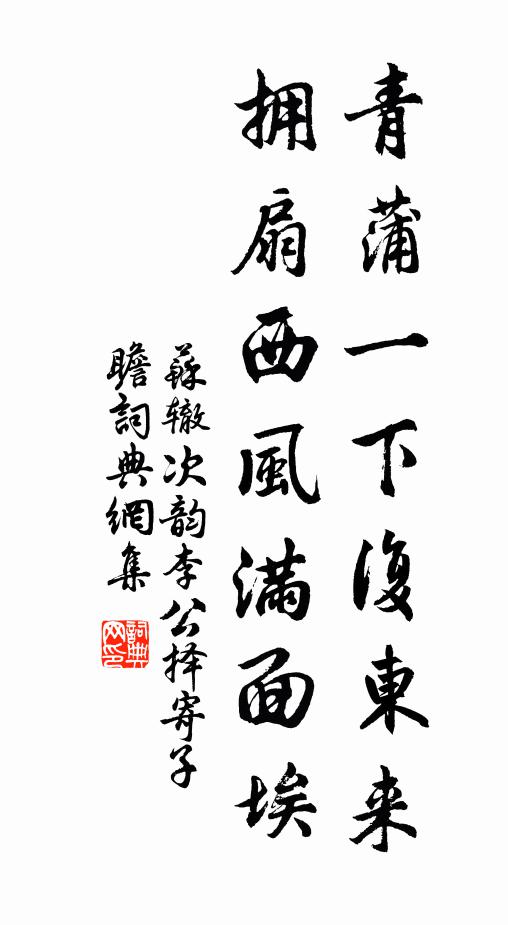 青蒲一下復東来
拥扇西風满面埃
蘇辙次韵李公择寄子
瞻詞典網集
詞典
网印